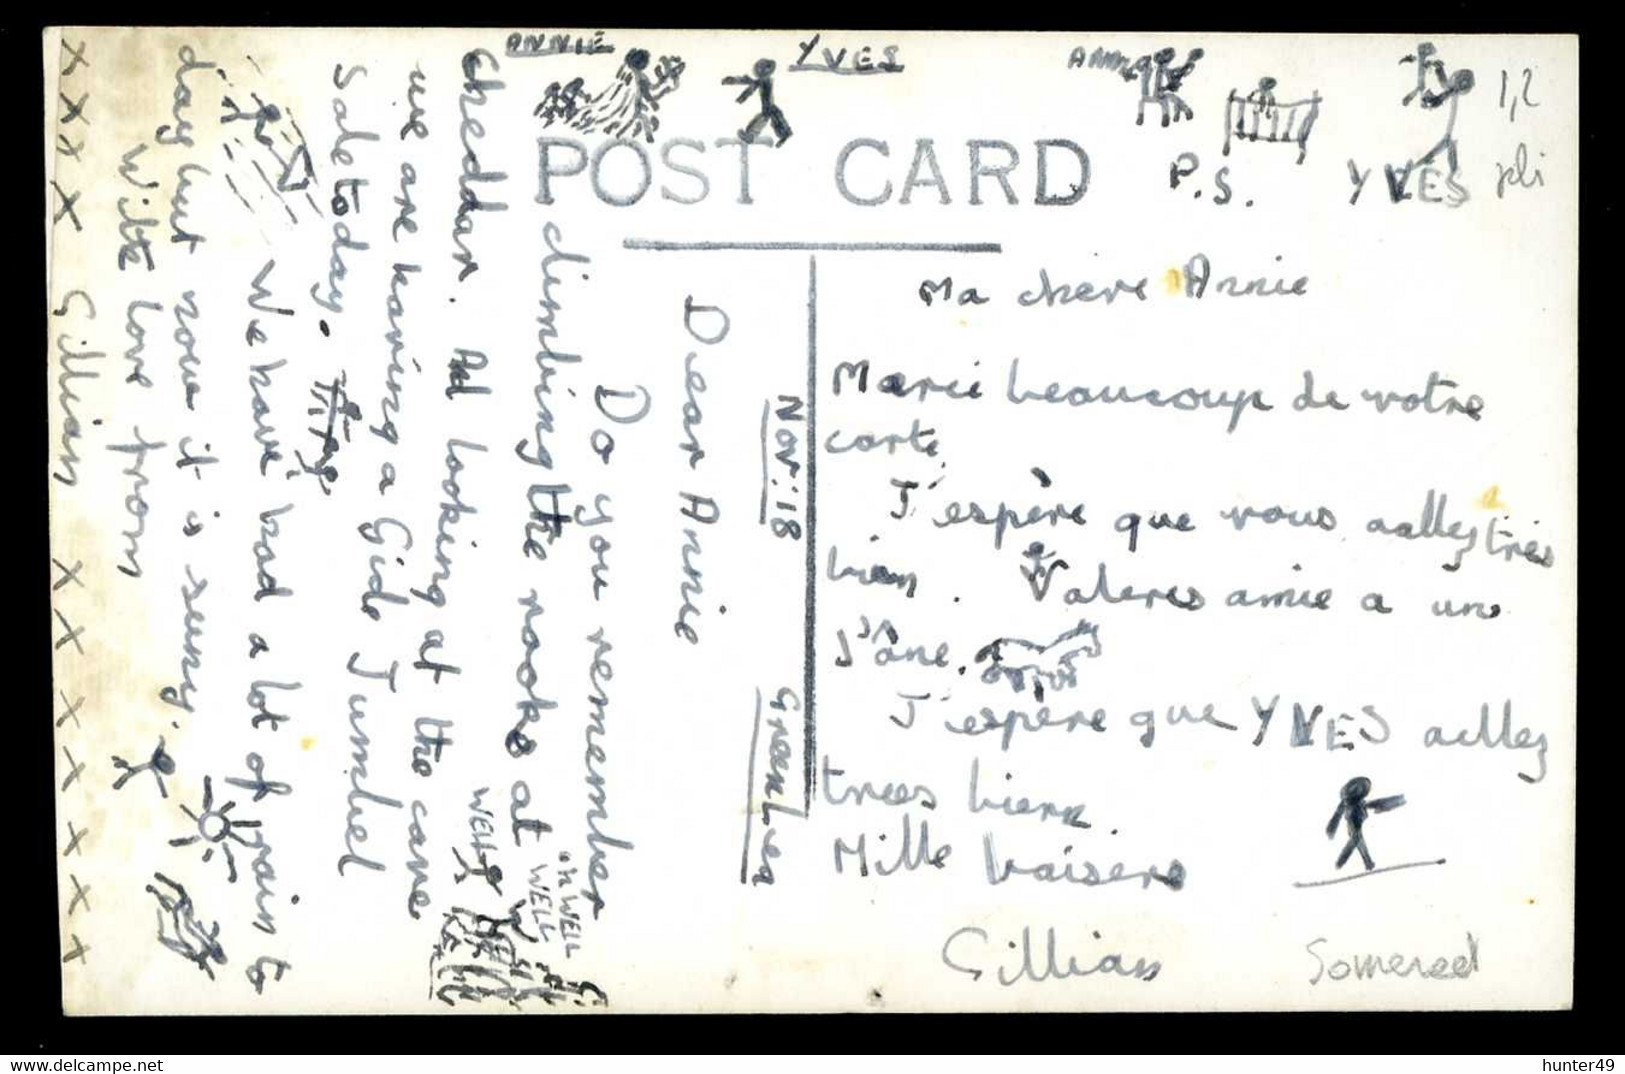 ANNIE
YVES
1,2
POST CARD
P.S.
YVES
Nov: 18
Greenben
Dear Annie
Do you remember
climbing the rooks at
Cheddar. And looking at the cave
we are having a Gide Jumbel
Sale today.
We have had a lot of rain to
day but now it is sunny.
With love from
x x x x Gillian x x x x x x x
WELL
WELL
WELL
Ma chere Annie
Marci beaucoup de votre
carte
J'espère que vous aalley tres
bien. Valeres amie a une
J'âne.
J'espère que YVES alley
trees bien.
Mille baisers
Gillian
Somereet
hunter49